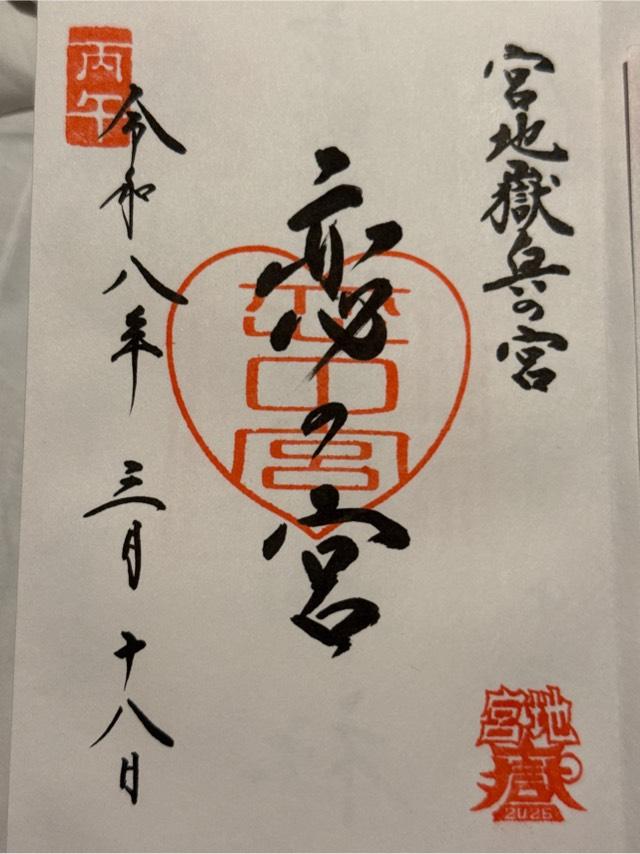 宮地嶽奥の宮
恋の宮
令和八年 三月十八日
丙午
宮地
2026